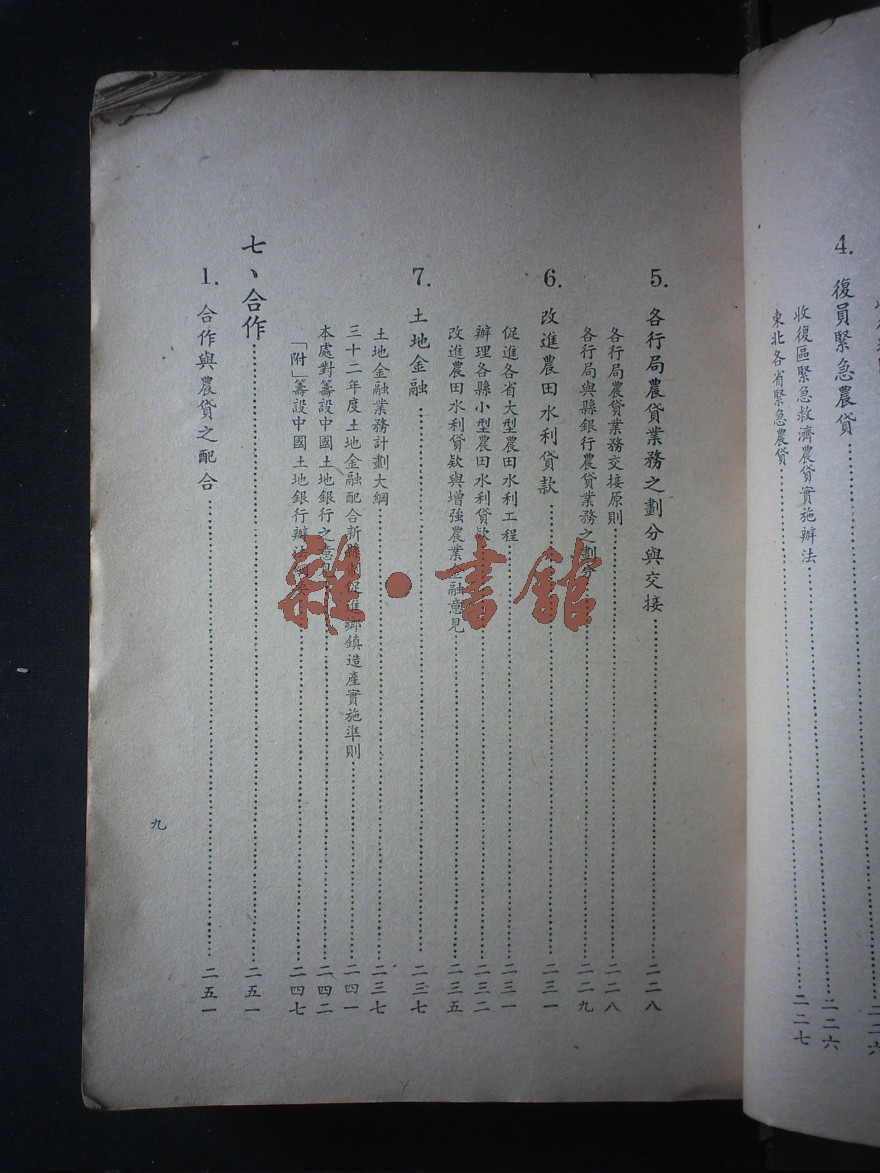 4. 復員緊急農貸……二二六
收復區緊急救濟農貸實施辦法……二二六
東北各省緊急農貸……二二七
5. 各行局農貸業務之劃分與交接……二二八
各行局農貸業務交接原則……二二八
各行局與縣銀行農貸業務之劃分……二二九
6. 改進農田水利貸款……二三一
促進各省大型農田水利工程……二三一
辦理各縣小型農田水利貸款……二三二
改進農田水利貸款與增強農業金融意見……二三五
7. 土地金融……二三七
土地金融業務計劃大綱……二三七
三十二年度土地金融配合新縣制促進鄉鎮造產實施準則……二四一
本處對籌設中國土地銀行之意見……二四二
「附」籌設中國土地銀行辦法……二四七
七、合作……二五一
1. 合作與農貸之配合……二五一
九
雜·書館